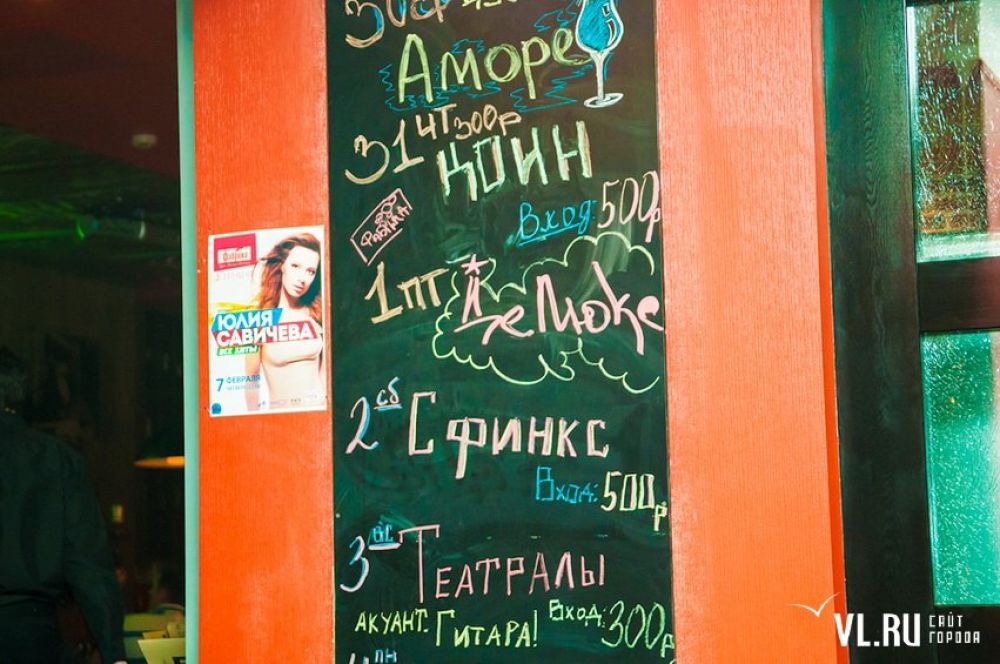 30 ср
Аморе
31 чт 300р
ЦОИН
ФАБРИКА
Вход: 500р
1 пт
Де Люке
2 сб Сфинкс
Вход: 500р
3 вс Театралы
АКУАНТ. Гитара! Вход: 300р
4 пн
Фабрика
ЮЛИЯ
САВИЧЕВА
ВСЕ ХИТЫ
7 ФЕВРАЛЯ
VL.RU САЙТ
ГОРОДА